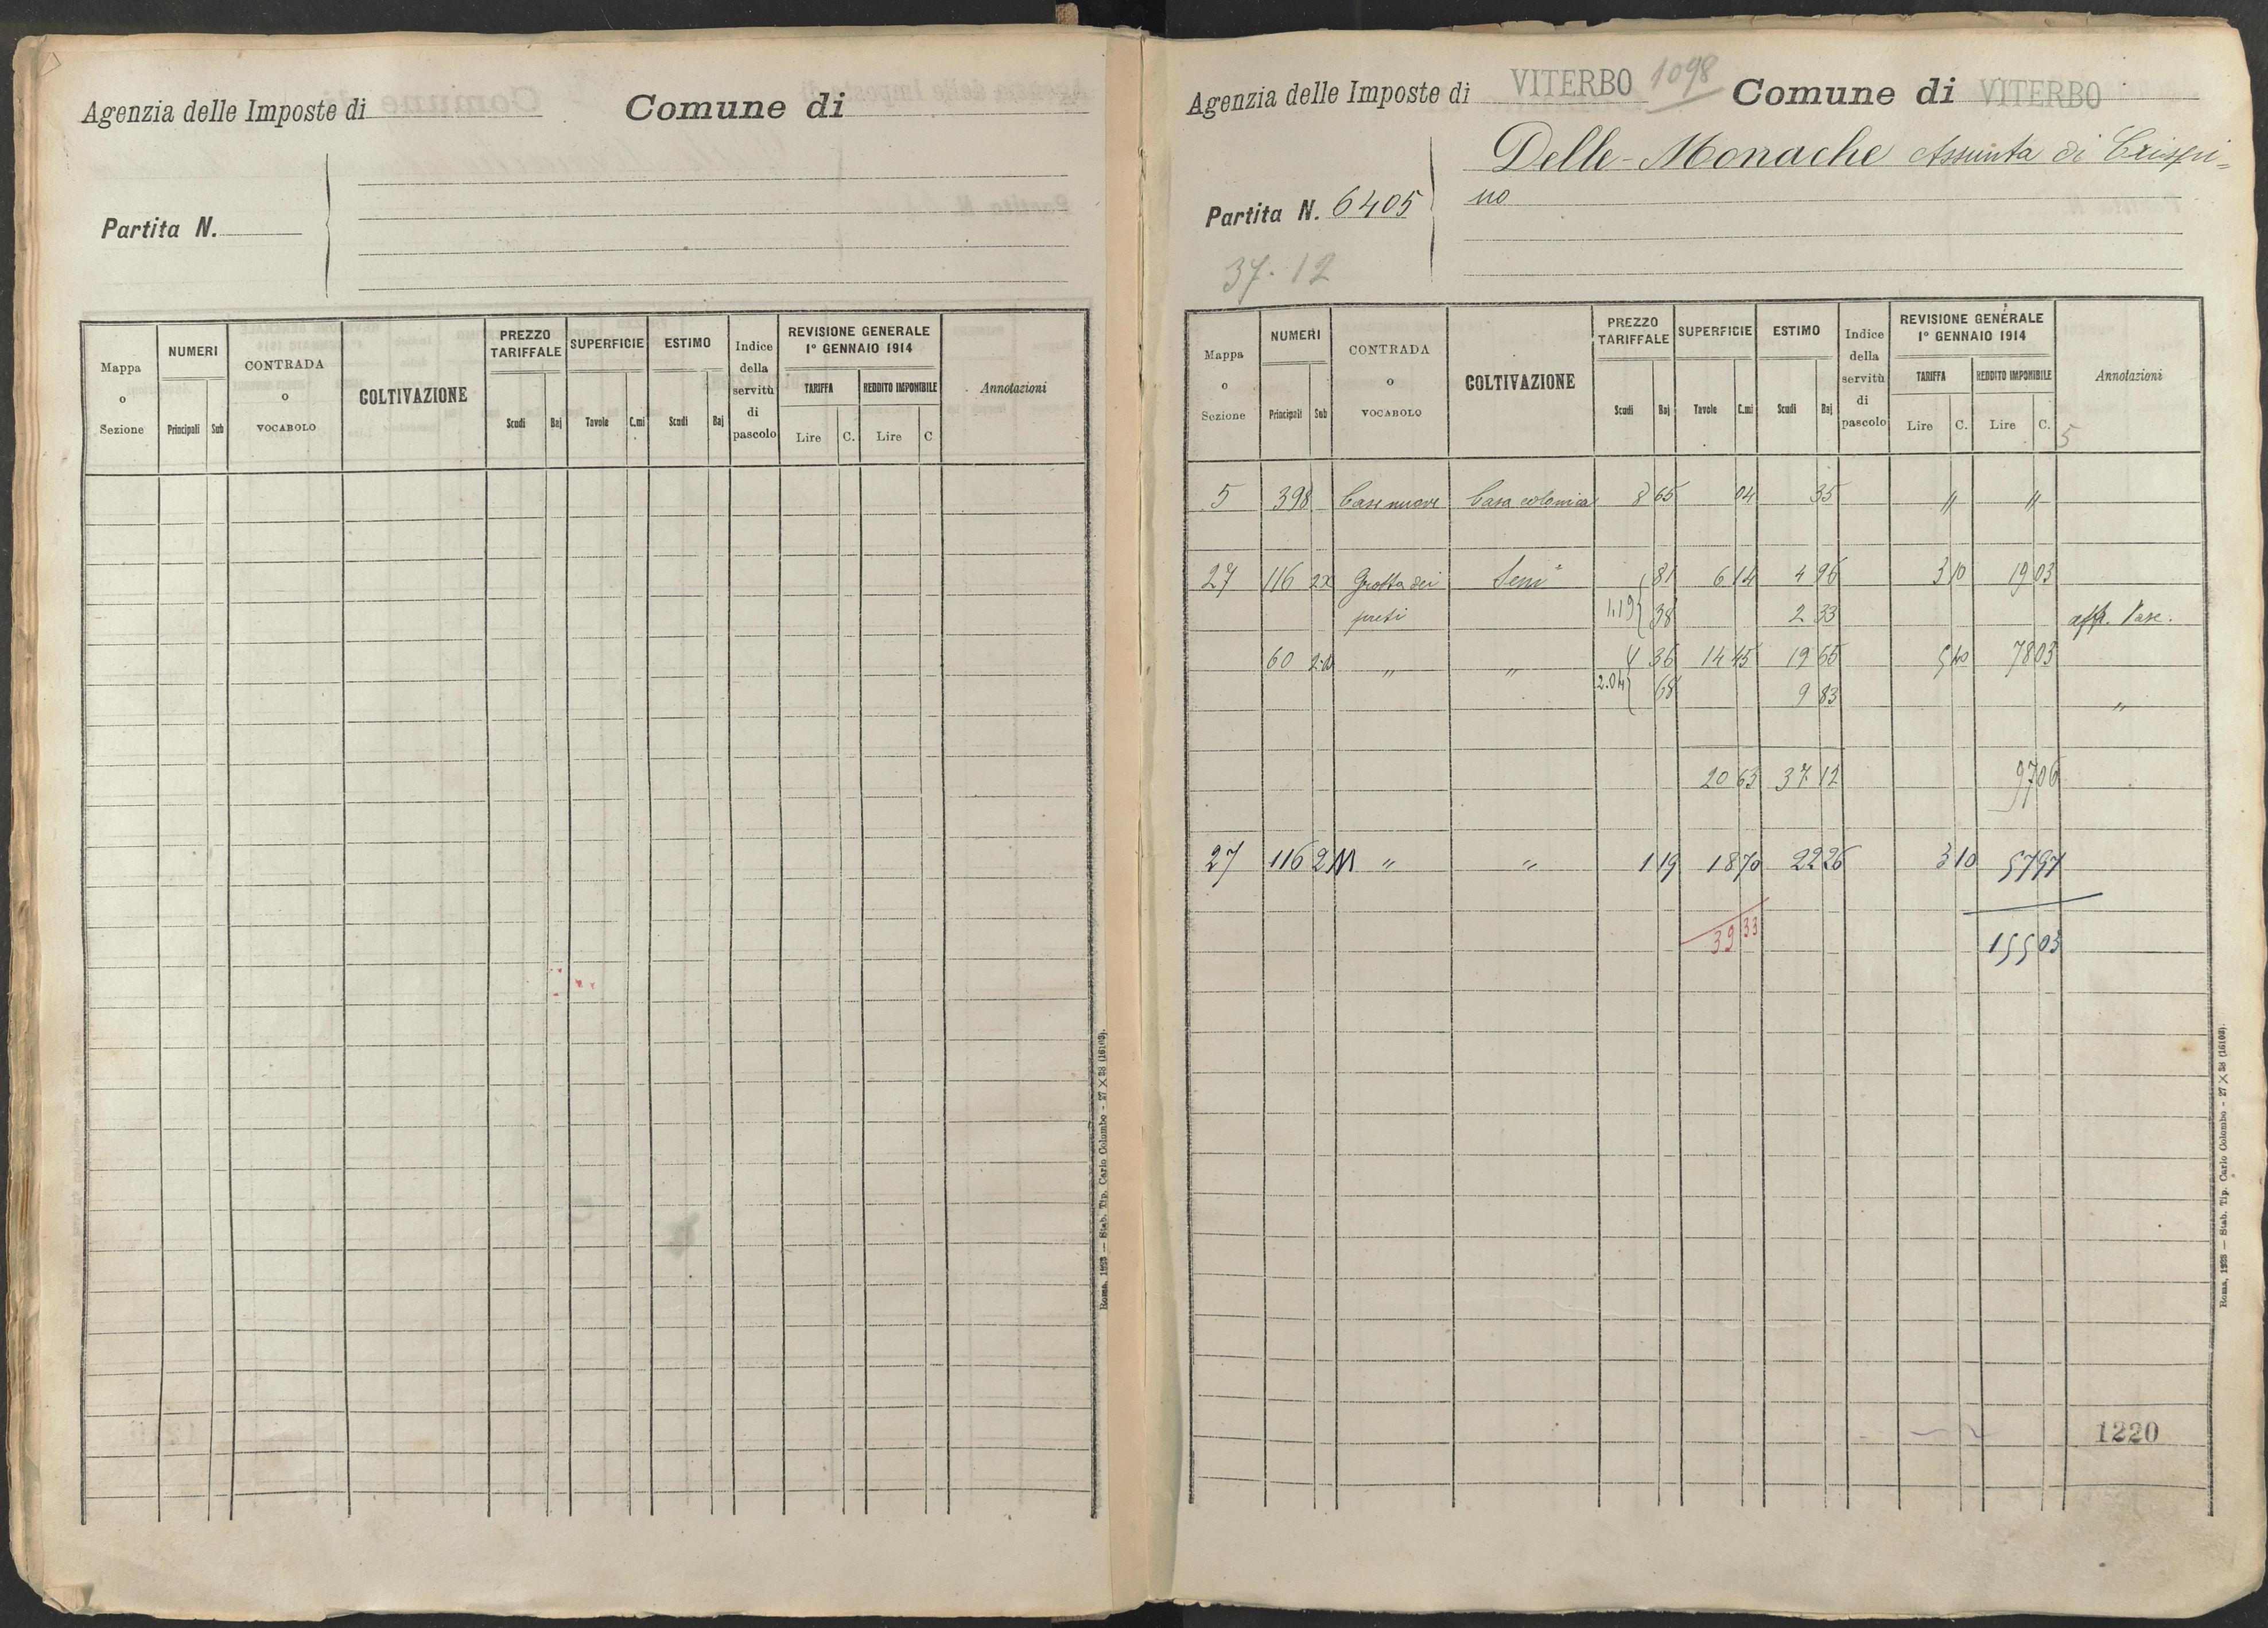 Agenzia delle Imposte di Comune di
Partita N.
Mappa o Sezione NUMERI Principali Sub CONTRADA o VOCABOLO COLTIVAZIONE PREZZO TARIFFALE Scudi Baj SUPERFICIE Tavole C.mi ESTIMO Scudi Baj Indice della servitù di pascolo REVISIONE GENERALE 1° GENNAIO 1914 TARIFFA Lire C. REDDITO IMPONIBILE Lire C. Annotazioni
Roma, 1923 — Stab. Tip. Carlo Colombo - 27 × 38 (16103).
Agenzia delle Imposte di VITERBO 1098 Comune di VITERBO
Delle-Monache Assunta di Crispi=
Partita N. 6405 no
37.12
Mappa o Sezione NUMERI Principali Sub CONTRADA o VOCABOLO COLTIVAZIONE PREZZO TARIFFALE Scudi Baj SUPERFICIE Tavole C.mi ESTIMO Scudi Baj Indice della servitù di pascolo REVISIONE GENERALE 1° GENNAIO 1914 TARIFFA Lire C. REDDITO IMPONIBILE Lire C. Annotazioni
5
5 398 Case nuove Casa colonica 8 65 04 35 " "
27 116 2x Grotta dei Sem° 81 6 14 4 96 3 10 19 03
preti 1.19 38 2 33 aff. Pasc.
60 " " 1 36 14 45 19 65 5 40 78 03
2.04 68 9 83 "
20 63 37 12 97 06
27 116 2M " " 1 19 18 70 22 26 3 10 57 97
39 33 155 03
1220
Roma, 1923 — Stab. Tip. Carlo Colombo - 27 × 38 (16103).